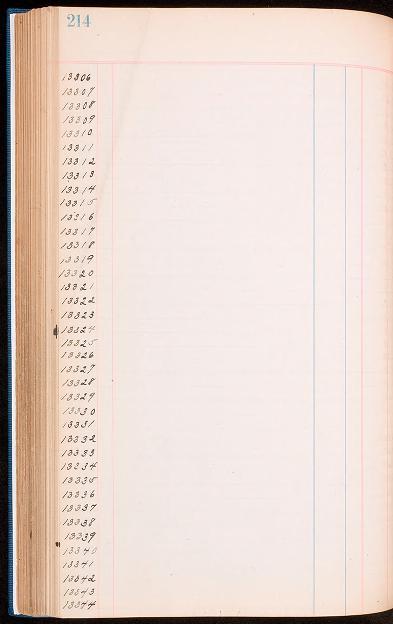 214
13306
13307
13308
13309
13310
13311
13312
13313
13314
13315
13316
13317
13318
13319
13320
13321
13322
13323
13324
13325
13326
13327
13328
13329
13330
13331
13332
13333
13334
13335
13336
13337
13338
13339
13340
13341
13342
13343
13344